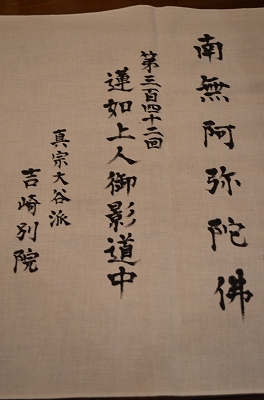 南無阿弥陀佛
第三百四十二回
蓮如上人御影道中
真宗大谷派
吉崎別院